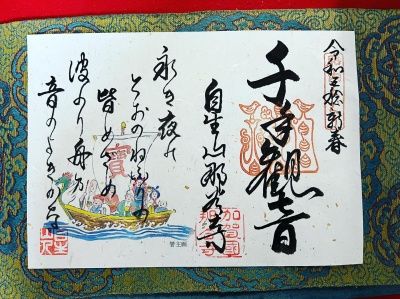 令和三年新春
千手観音
自生山那谷寺
加賀國
那谷寺
永き夜の
とおのねふりの
皆めざめ
波のり舟の
音のよきかな
寶